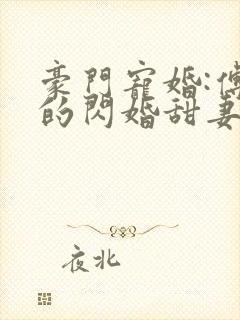 豪門寵婚:傅
的閃婚甜妻
夜北